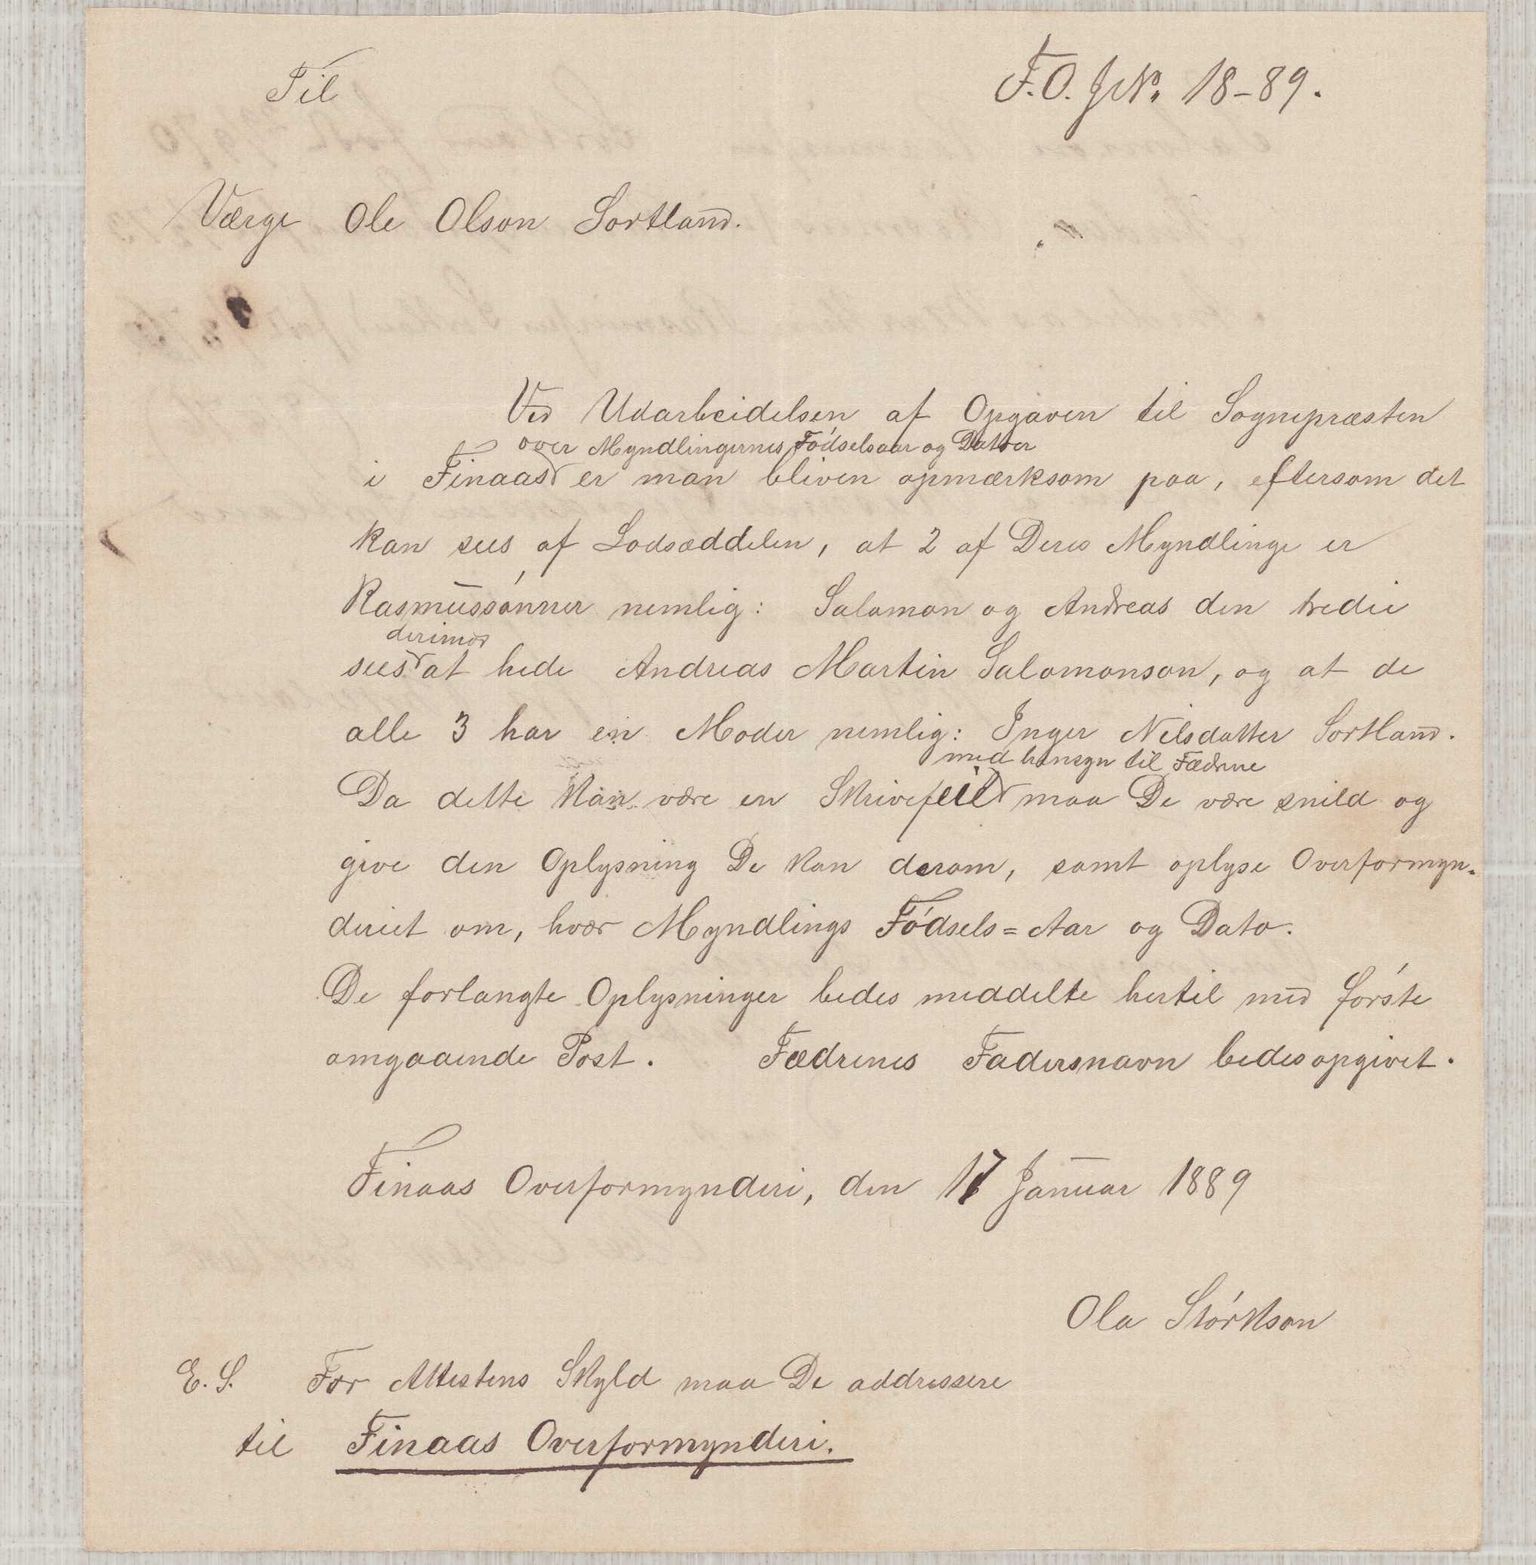 Til
F.O. J.No. 18-89.
Værge Ole Olson Sortland.
Ved Udarbeidelsen af Opgaven til Sognepræsten
over Myndlingernes Födselsaar og Datoer
i Finaas er man bleven opmærksom paa, eftersom det
kan sees af Lodsæddelen, at 2 af Deres Myndlinge er
Rasmussønner nemlig: Salamon og Andreas den tredie
derimod
sees at hede Andreas Martin Salomonson, og at de
alle 3 har en Moder nemlig: Inger Nilsdatter Sortland.
med hensyn til Fædrene
Da dette kan være en Skrivefeil maa De være snild og
give den Oplysning De kan derom, samt oplyse Overformyn-
deriet om, hver Myndlings Födsels=Aar og Dato.
De forlangte Oplysninger bedes meddelte hertil med förste
omgaaende Post. Fædrenes Fadersnavn bedes opgivet.
Finaas Overformynderi, den 17 Januar 1889
Ola Störkson
E. S. For Attestens Skyld maa De addressere
til Finaas Overformynderi.